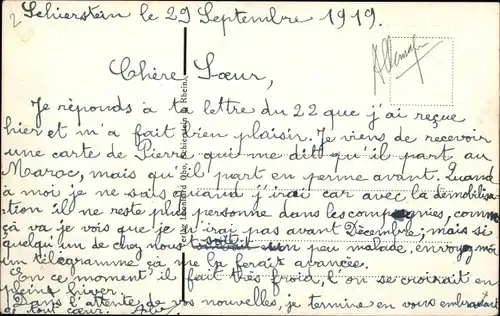 Schierstein le 29 Septembre 1919.
Allemagne
Chère Sœur,
Je réponds à ta lettre du 22 que j'ai reçue
hier et m'a fait bien plaisir. Je viens de recevoir
une carte de Pierre qui me dit qu'il part au
Maroc, mais qu'il part en perme avant. Quand
à moi je ne sais quand j'irai car avec la démobilisa-
tion il ne reste plus personne dans les compagnies, comme
çà va je vois que je n'irai pas avant Décembre; mais si
quelqu'un de chez nous soit un peu malade, envoyez moi
un télégramme çà me la ferait avancée.
En ce moment il fait très froid, l'on se croirait en
pleine hiver.
Dans l'attente de vos nouvelles, je termine en vous embrassant
de tout cœur.
Schierstein a. Rhein.